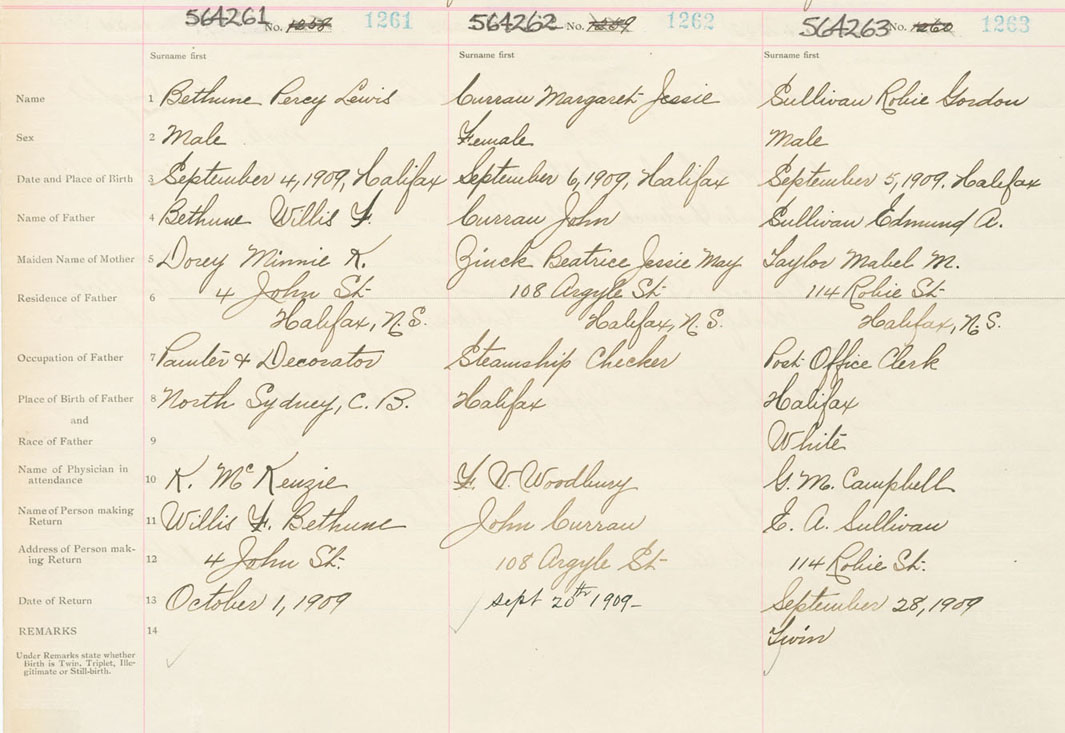 564261 No. 1258 1261
564262 No. 1259 1262
564263 No. 1260 1263
Surname first Surname first Surname first
Name 1 Bethune Percy Lewis Curran Margaret Jessie Sullivan Robie Gordon
Sex 2 Male Female Male
Date and Place of Birth 3 September 4, 1909, Halifax September 6, 1909, Halifax September 5, 1909. Halifax
Name of Father 4 Bethune Willis F. Curran John Sullivan Edmund A.
Maiden Name of Mother 5 Dorey Minnie K. Zinck Beatrice Jessie May Taylor Mabel M.
Residence of Father 6 4 John St. 108 Argyle St. 114 Robie St.
Halifax, N.S. Halifax, N.S. Halifax, N.S.
Occupation of Father 7 Painter & Decorator Steamship Checker Post Office Clerk
Place of Birth of Father 8 North Sydney, C. B. Halifax Halifax
and
Race of Father 9 White
Name of Physician in
attendance 10 K. McKenzie F. V. Woodbury G. M. Campbell
Name of Person making
Return 11 Willis F. Bethune John Curran E. A. Sullivan
Address of Person mak-
ing Return 12 4 John St. 108 Argyle St. 114 Robie St.
Date of Return 13 October 1, 1909 Sept 20th 1909- September 28, 1909
REMARKS 14 Twin
Under Remarks state whether
Birth is Twin, Triplet, Ille-
gitimate or Still-birth.